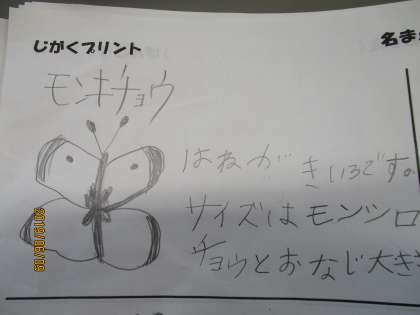 じがくプリント
名ま
モンキチョウ
はねが きいろです。
サイズはモンシロ
チョウとおなじ大き